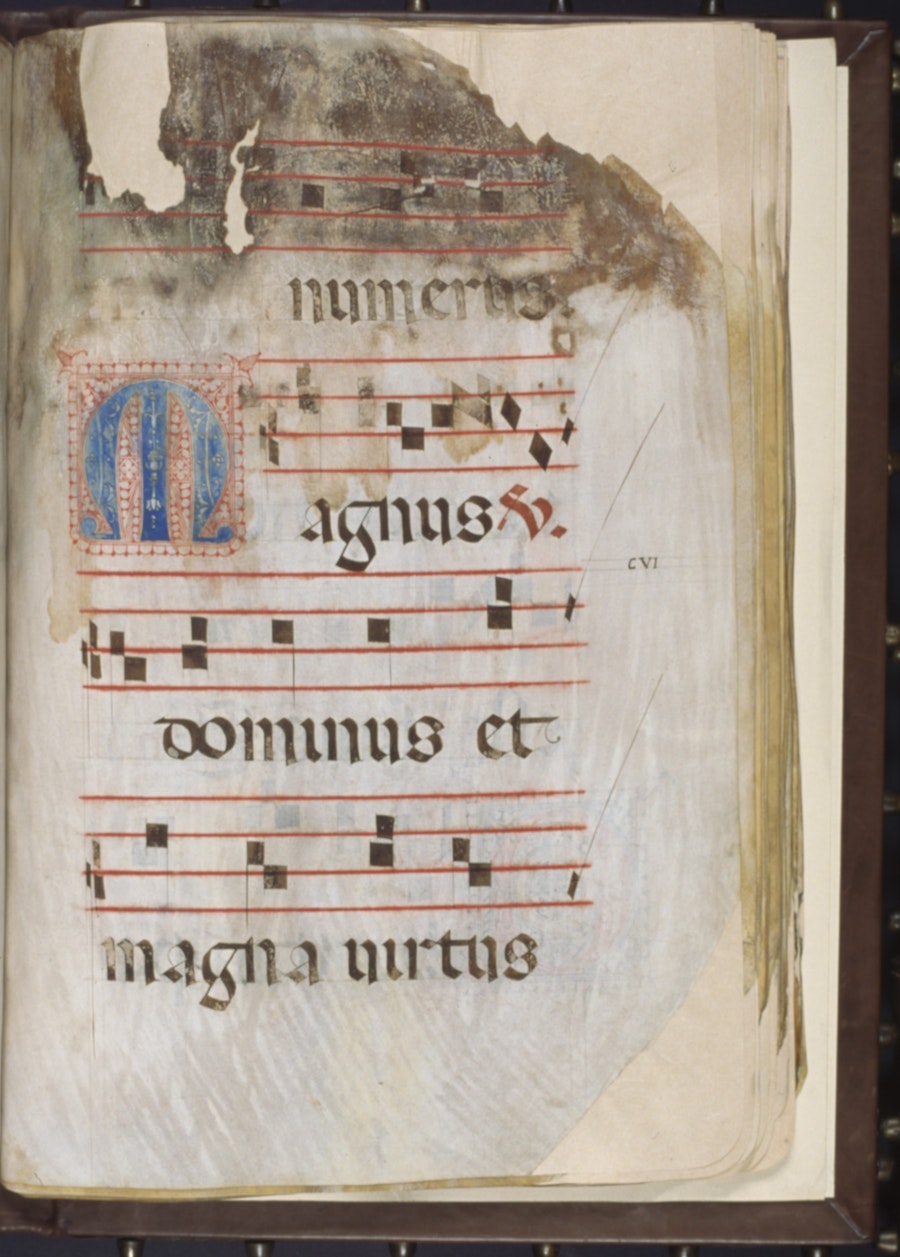 numerus.
Magnus V.
CVI
dominus et
magna uirtus